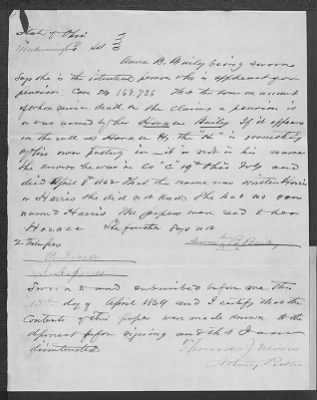 State of Ohio
Anna B. Baily being sworn
Says she is the identical person who is applicant for
pension. Con No 169,726 That the son on account
of whose service death or the claims a pension is
or was named by her Horace Baily If it appears
on the roll as Horace H, the "H" is something
of his own it is not in his name
she knows he was in Co "C" 19th Ohio Inf and
died April 8th 1862 That the name was written Harris
or Harris she did not know she had no son
named Harris. The papers were read to her
Horace She further says not
2 Witnesses
Anna B. Baily
Sworn to and subscribed before me this
day of April 1864 and I certify that the
contents of this paper was made known to the
deponent before signing and that I am
disinterested
Thomas J Moore
Notary Public